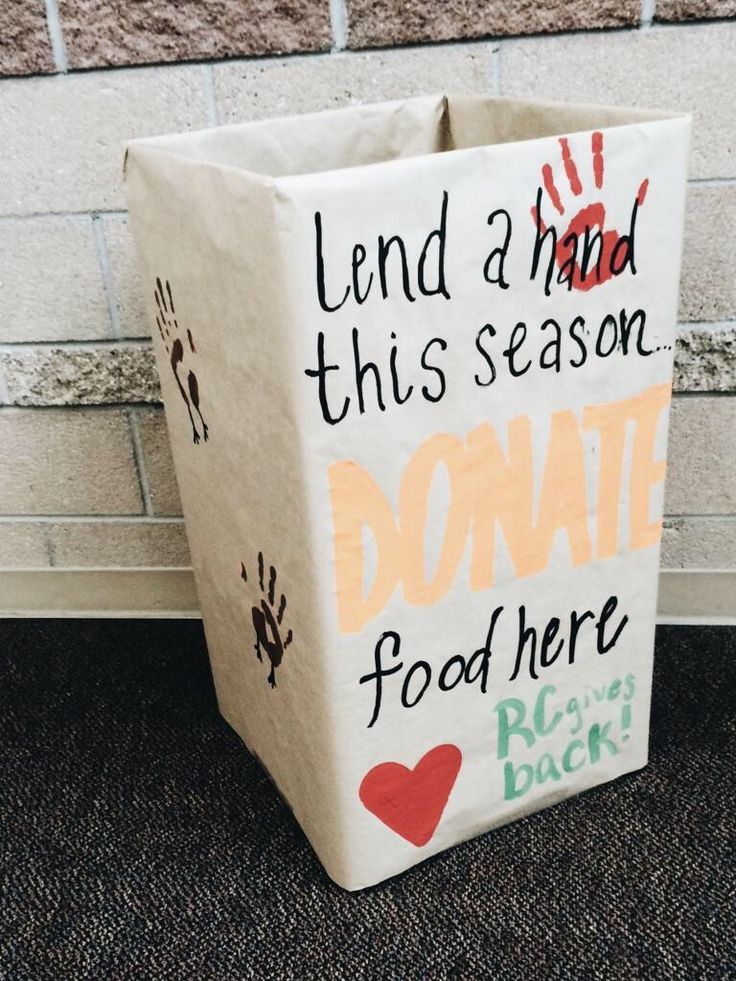 Lend a hand
this season...
DONATE
food here
RC gives
back!